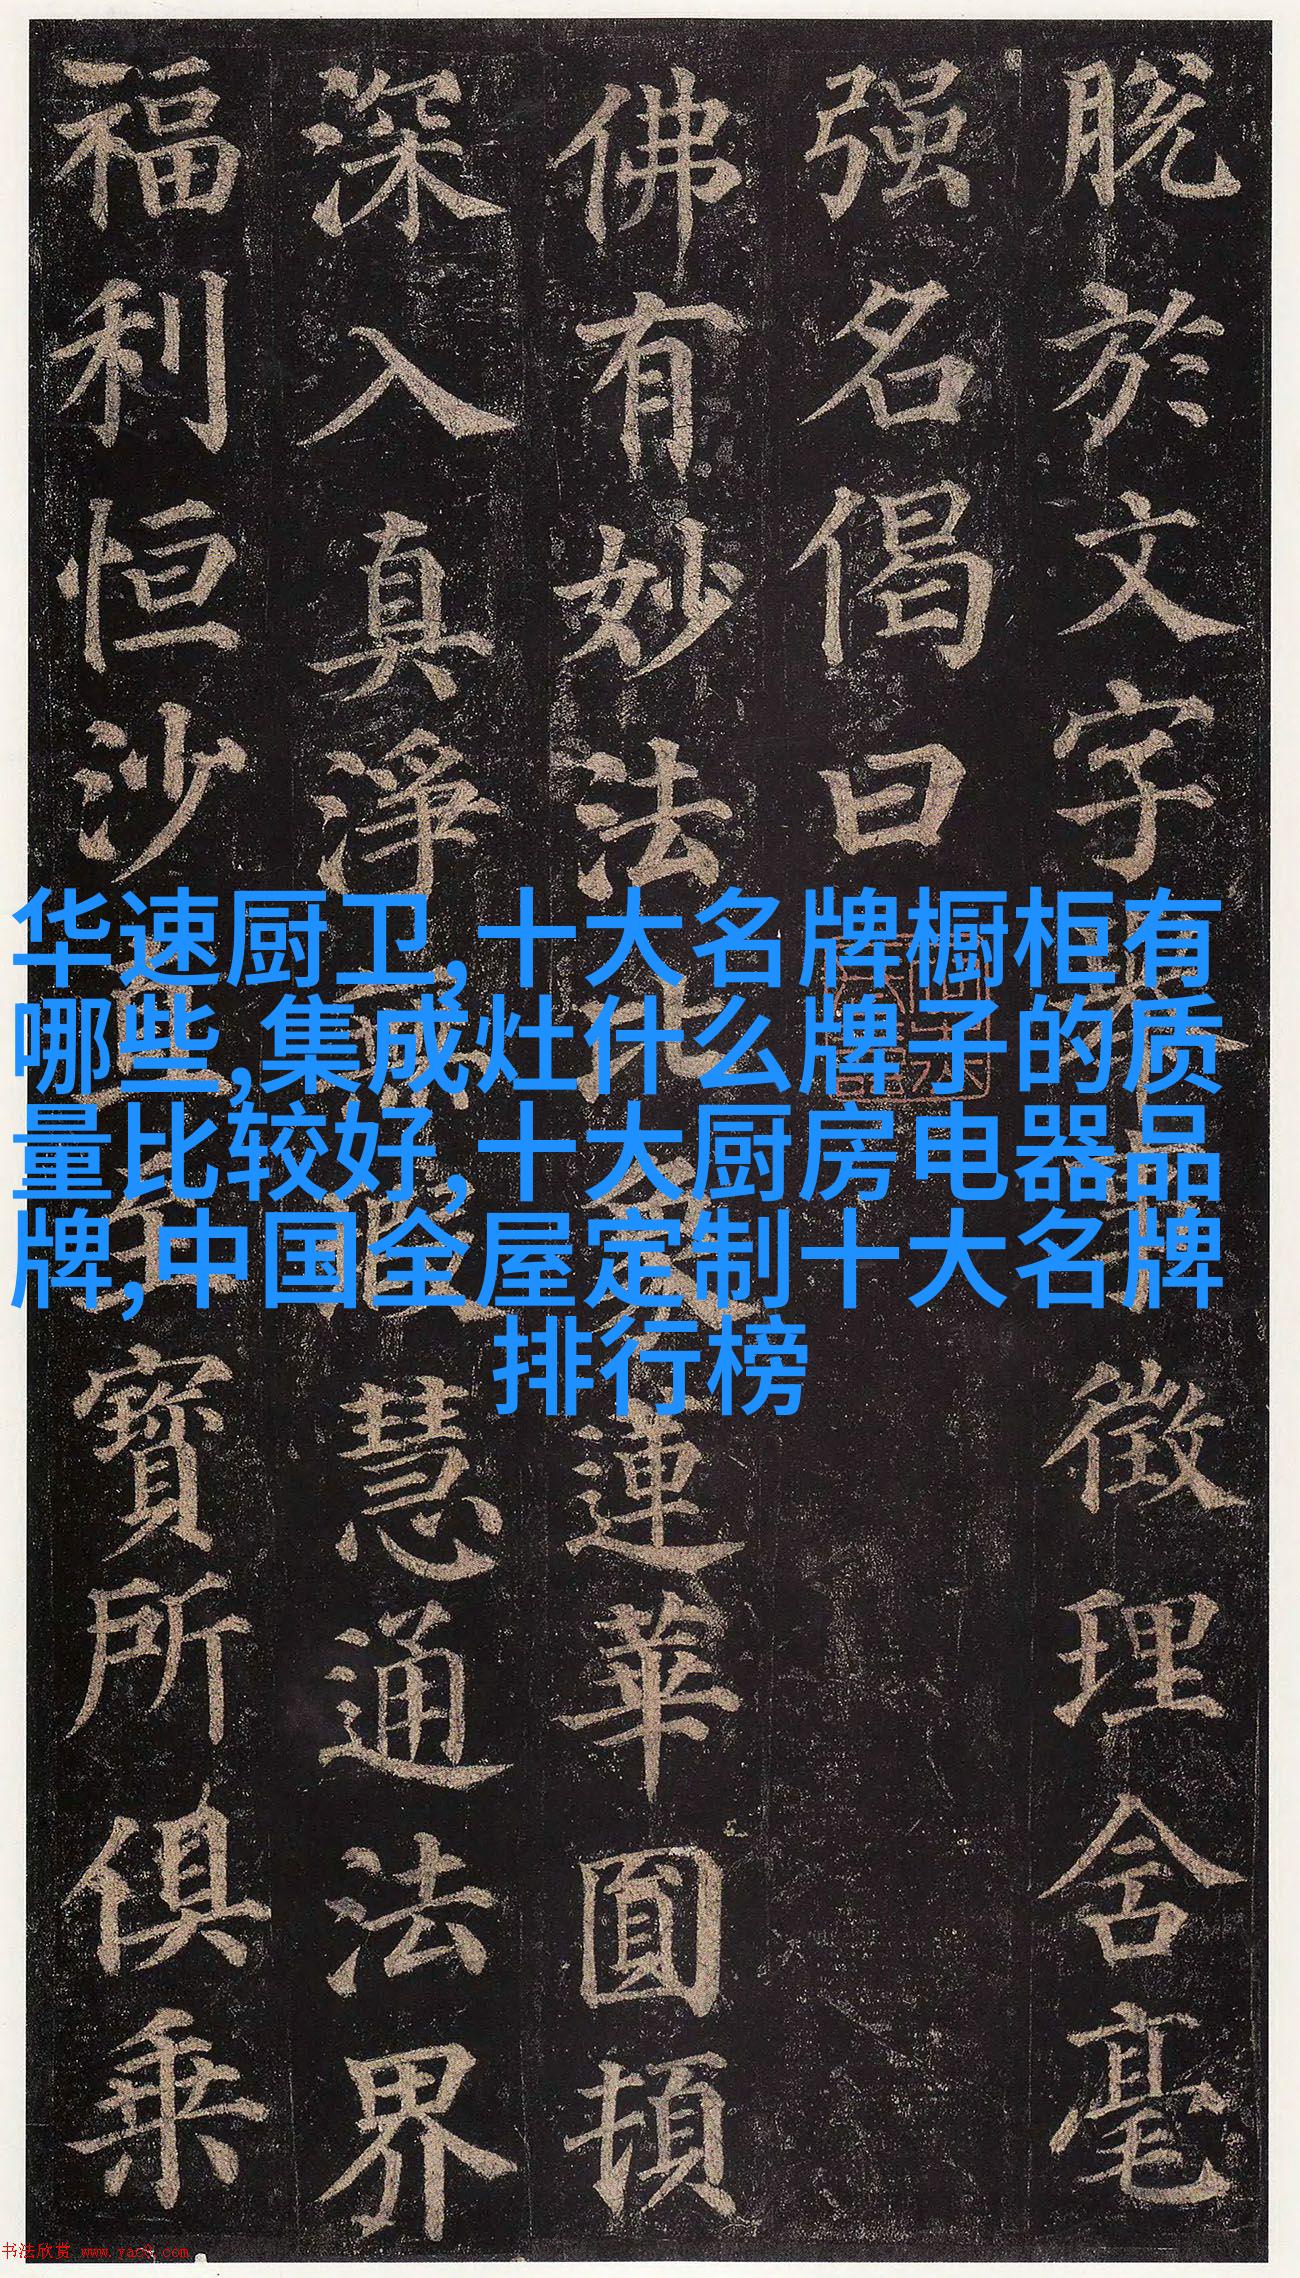 脱於文字徵理含毫
强名偈曰
佛有妙法比蓮華圓頓
深入真淨慧通法界
福利恒沙寶所俱乘
华速厨卫,十大名牌橱柜有
哪些,集成灶什么牌子的质
量比较好,十大厨房电器品
牌,中国全屋定制十大名牌
排行榜
书法欣赏 www.yac8.com